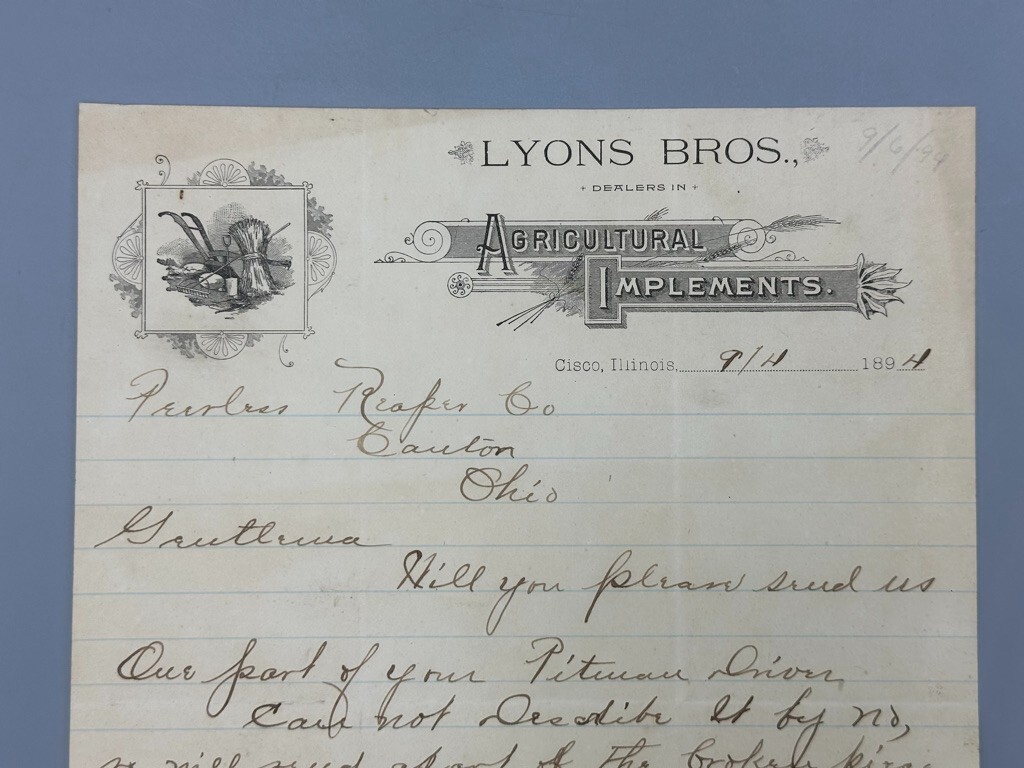 9/6/94
LYONS BROS.,
DEALERS IN
AGRICULTURAL
IMPLEMENTS.
Cisco, Illinois, 9/4 1894
Peerless Reaper Co
Canton
Ohio
Gentlemen
Will you please send us
One part of your Pitman Driver
Can not Describe It by no,
we will send a part of the broken piece